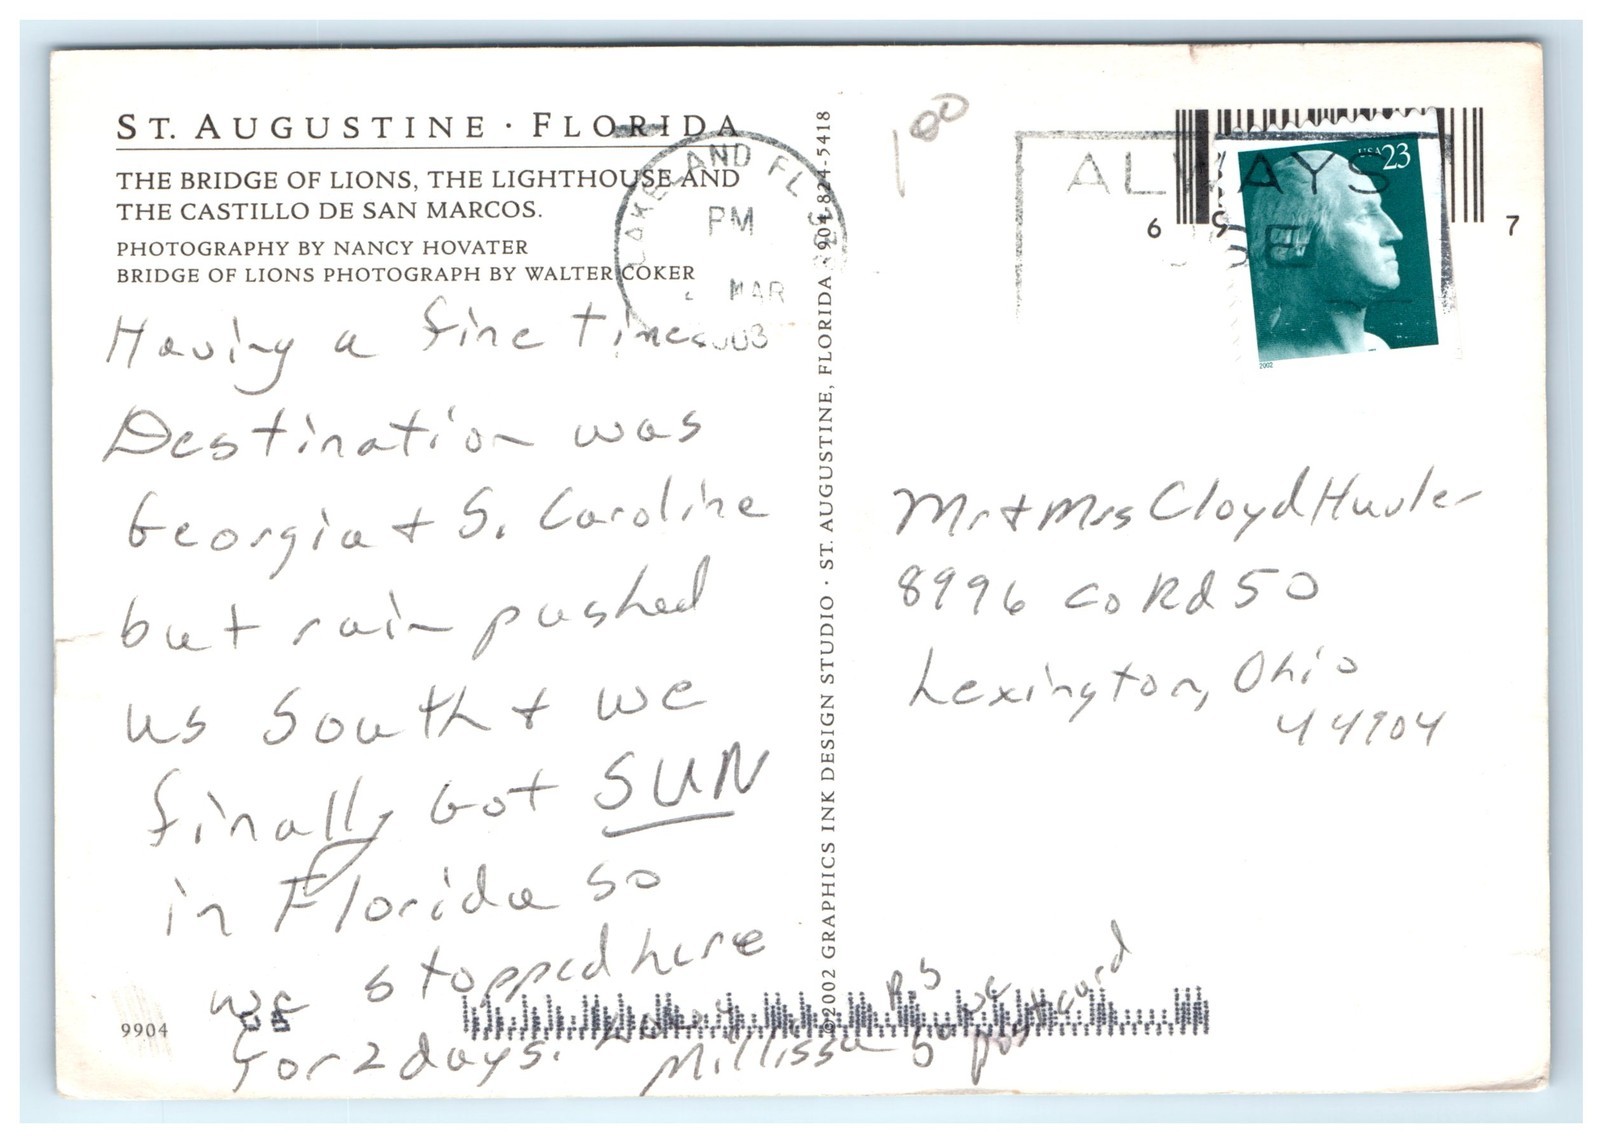 ST. AUGUSTINE · FLORIDA
THE BRIDGE OF LIONS, THE LIGHTHOUSE AND
THE CASTILLO DE SAN MARCOS.
PHOTOGRAPHY BY NANCY HOVATER
BRIDGE OF LIONS PHOTOGRAPH BY WALTER COKER
LAKELAND FL
PM
MAR
2003
Having a fine time
Destination was
Georgia + S. Caroline
but rain pushed
us South + we
finally Got SUN
in Florida so
we stopped here
for 2 days.
Millissa
PS
postcard
9904
©2002 GRAPHICS INK DESIGN STUDIO · ST. AUGUSTINE, FLORIDA · 904-824-5418
1 00
ALWAYS
USE
6
9
7
USA 23
2002
Mr + Mrs Cloyd
8996 Co Rd 50
Lexington, Ohio
44904